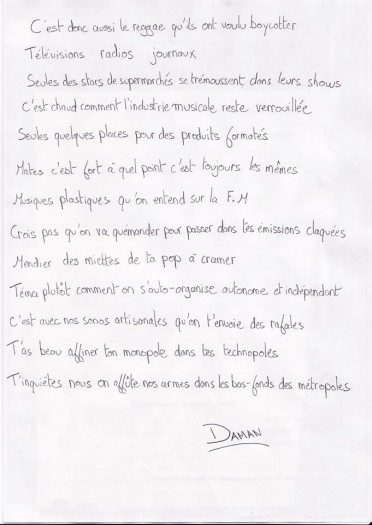 C'est donc aussi le reggae qu'ils ont voulu boycotter
Télévisions radios journaux
Seules des stars de supermarchés se trémoussent dans leurs shows
C'est chaud comment l'industrie musicale reste verrouillée
Seules quelques places pour des produits formatés
Mates c'est fort à quel point c'est toujours les mêmes
Musiques plastiques qu'on entend sur la F.M
Crois pas qu'on va quémander pour passer dans tes émissions claquées
Mendier des miettes de ta pop à cramer
Téma plutôt comment on s'auto-organise autonome et indépendant
C'est avec nos sonos artisanales qu'on t'envoie des rafales
T'as beau affiner ton monopole dans tes technopoles
T'inquiètes nous on affûte nos armes dans les bas-fonds des métropoles
DAMAN